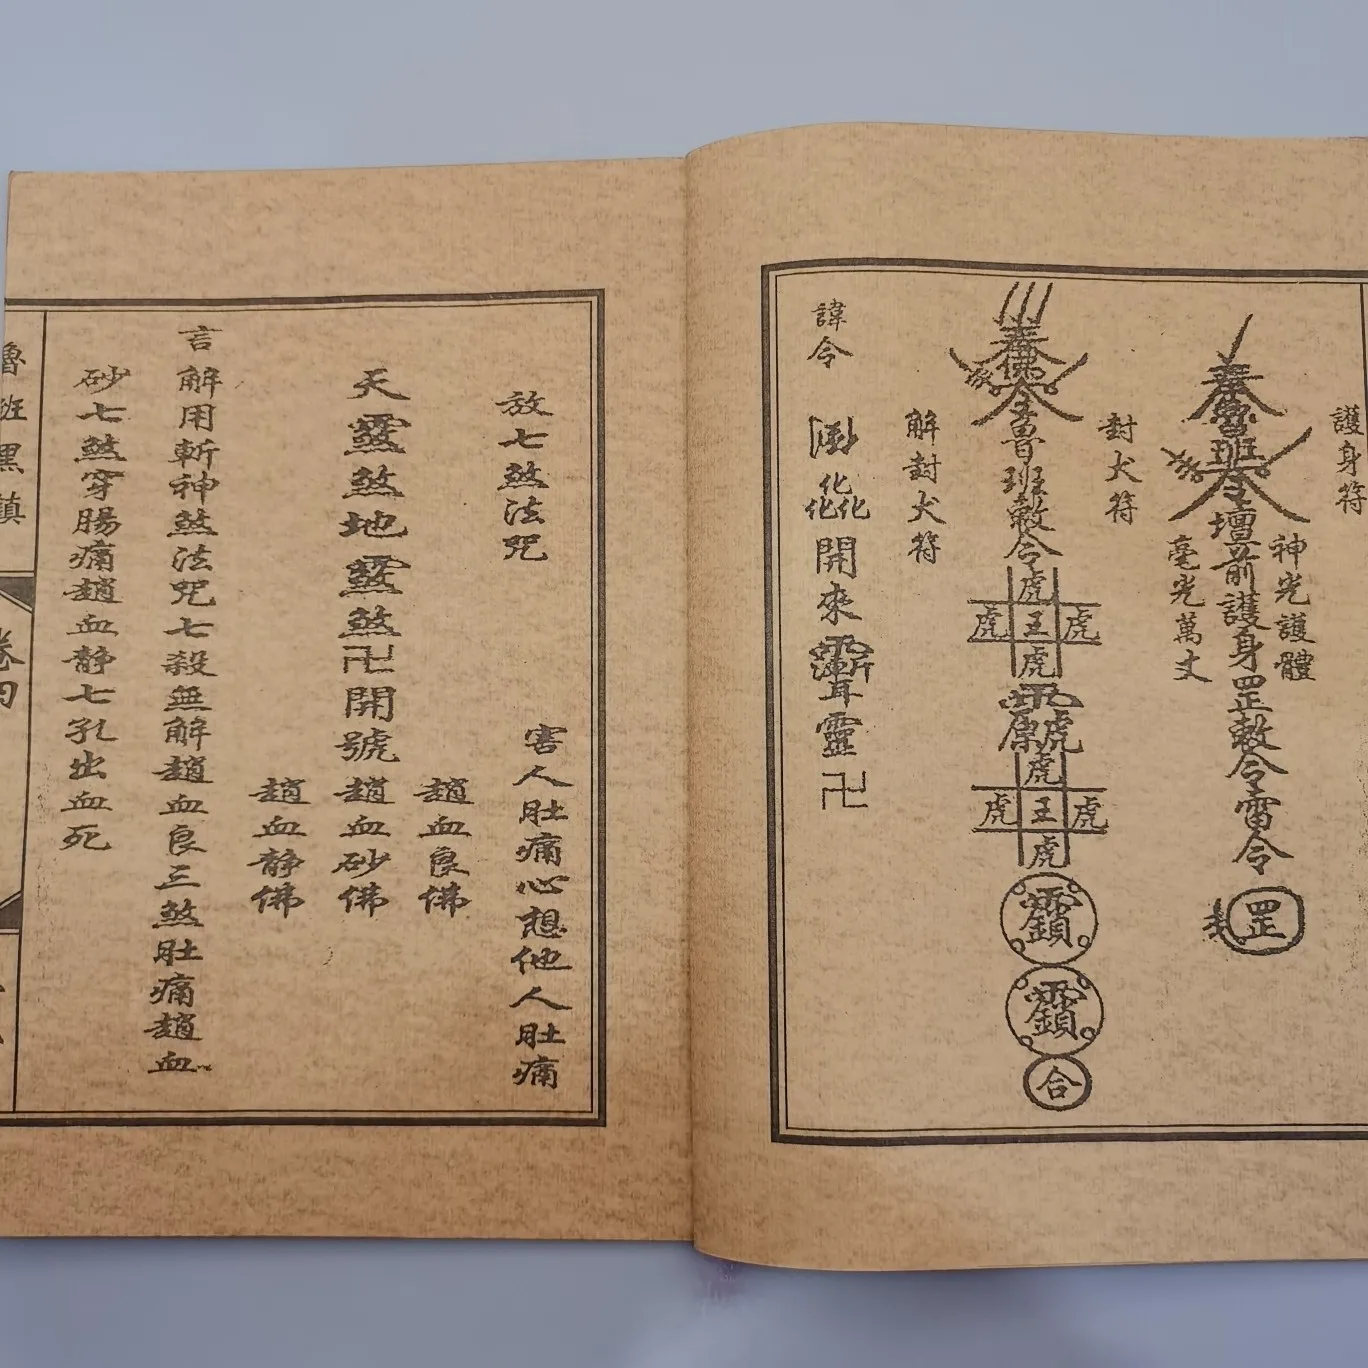 護身符
神光護體
奉魯班
壇前護身罡敕令雷令
罡
毫光萬丈
封犬符
奉佛
令魯班敕令
虎
虎王虎
虎
虎
虎
虎王虎
虎
合
解封犬符
諱令
化
化化
開來
耳靈卍
放七煞法咒
害人肚痛心想他人肚痛
天
煞地
煞卍開號
趙血良佛
趙血砂佛
趙血静佛
言解用斬神煞法咒七殺無解趙血良三煞肚痛趙血
砂七煞穿腸痛趙血静七孔出血死
魯班黑鎮
卷四